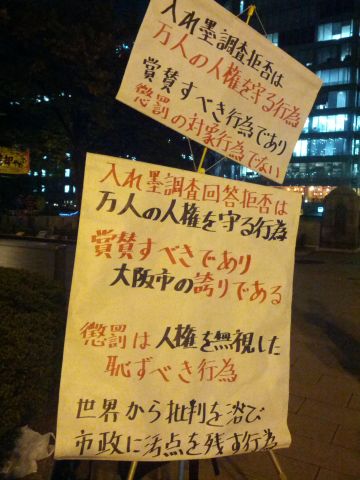 入れ墨調査拒否は
万人の人権を守る行為
賞賛すべき行為であり
懲罰の対象行為でない
入れ墨調査回答拒否は
万人の人権を守る行為
賞賛すべきであり
大阪市の誇りである
懲罰は人権を無視した
恥ずべき行為
世界から批判を浴び
市政に汚点を残す行為